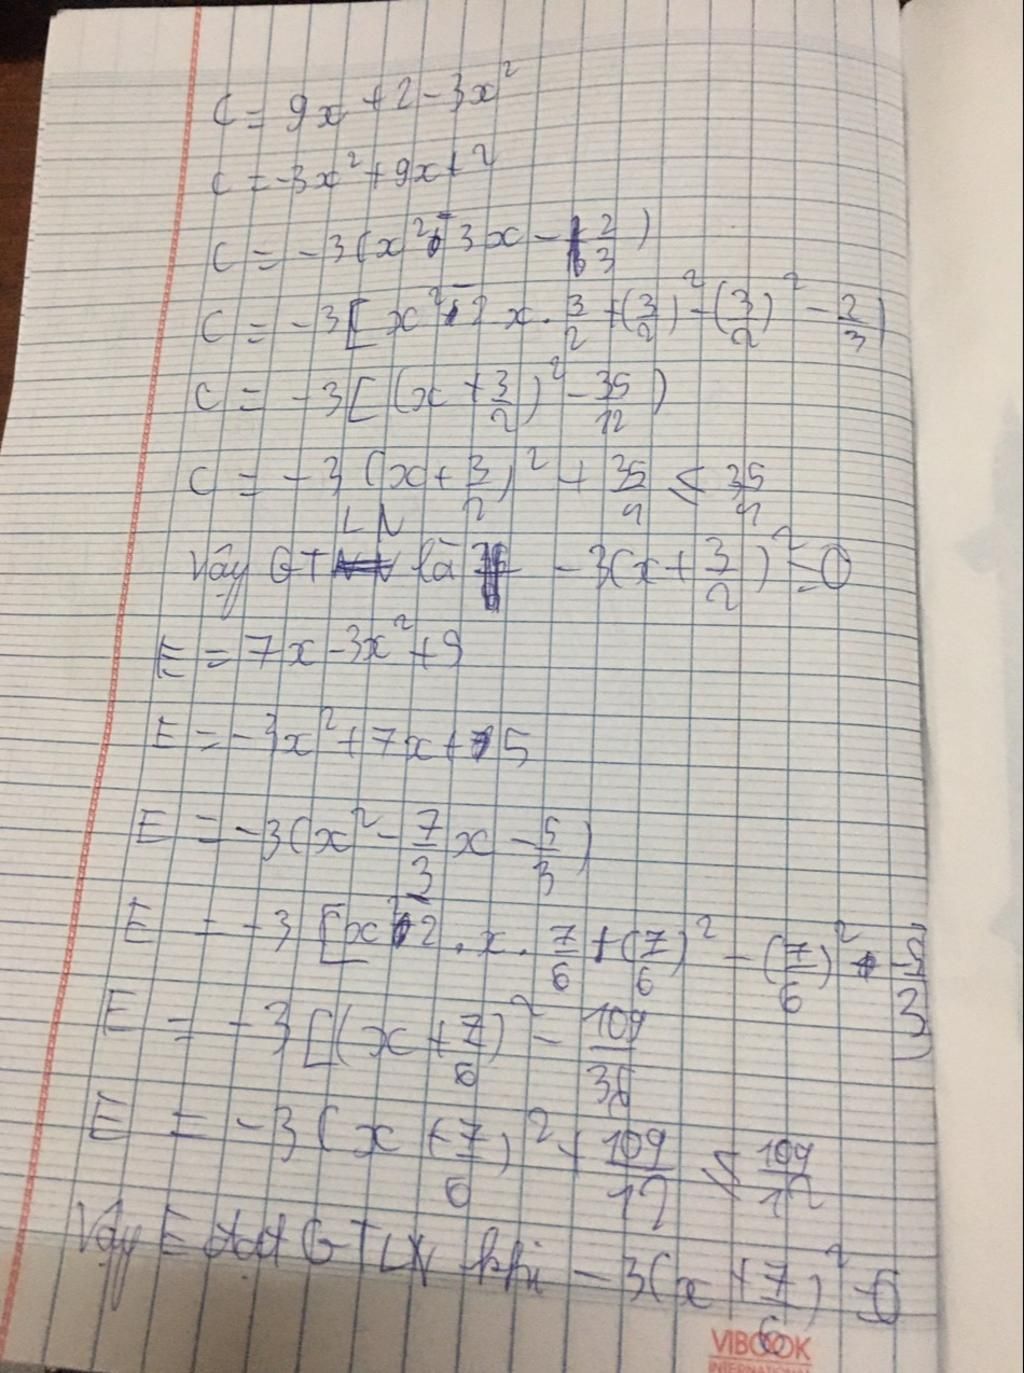 C = 9x + 2 - 3x²
C = -3x² + 9x + 2
C = -3(x² - 3x - 2/3)
C = -3[x² - 2x . 3/2 + (3/2)² - (3/2)² - 2/3)
C = -3[(x + 3/2)² - 35/12)
C = -3(x + 3/2)² + 35/4 ≤ 35/4
Vậy GTLN là -3(x + 3/2)² = 0
E = 7x - 3x² + 9
E = -3x² + 7x + 5
E = -3(x² - 7/3 x - 5/3)
E = -3[x² - 2 . x . 7/6 + (7/6)² - (7/6)² - 5/3]
E = -3[(x + 7/6)² - 109/36
E = -3(x + 7/6)² + 109/12 ≤ 109/12
Vậy E đạt GTLN khi -3(x + 7/6)² = 0
VIBOOK
INTERNATIONAL